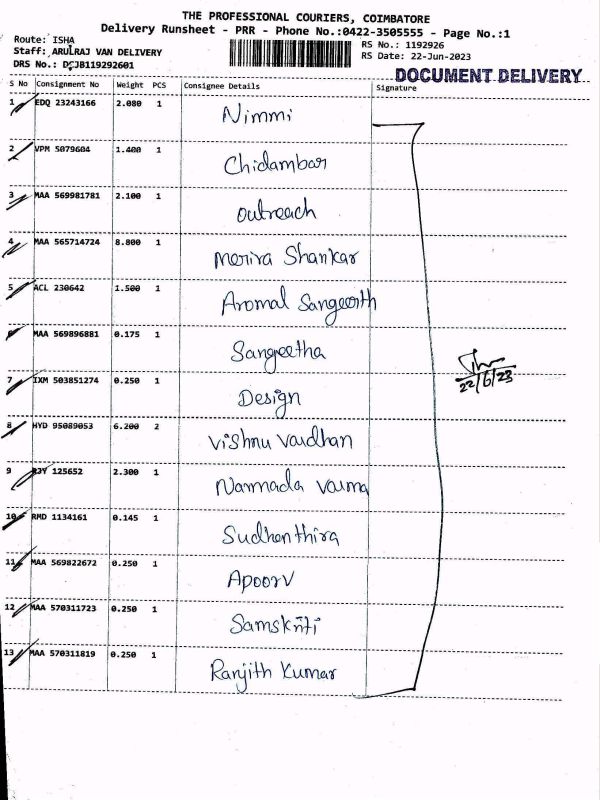 THE PROFESSIONAL COURIERS, COIMBATORE
Delivery Runsheet - PRR - Phone No.:0422-3505555 - Page No.:1
Route: ISHA
Staff: ARULRAJ VAN DELIVERY
DRS No.: DCJB119292601
RS No.: 1192926
RS Date: 22-Jun-2023
DOCUMENT DELIVERY
S No Consignment No Weight PCS Consignee Details Signature
1 EDQ 23243166 2.080 1 Nimmi
2 VPM 5079604 1.400 1 Chidambar
3 MAA 569981781 2.100 1 outreach
4 MAA 565714724 8.800 1 Merira Shankar
5 ACL 230642 1.500 1 Aromal Sangeerth
6 MAA 569896881 0.175 1 Sangeetha
22/6/23
7 IXM 503851274 0.250 1 Design
8 HYD 95089053 6.200 2 Vishnu Vardhan
9 RJY 125652 2.300 1 Narmada Varma
10 RMD 1134161 0.145 1 Sudhanthira
11 MAA 569822672 0.250 1 Apoorv
12 MAA 570311723 0.250 1 Samskriti
13 MAA 570311819 0.250 1 Ranjith Kumar